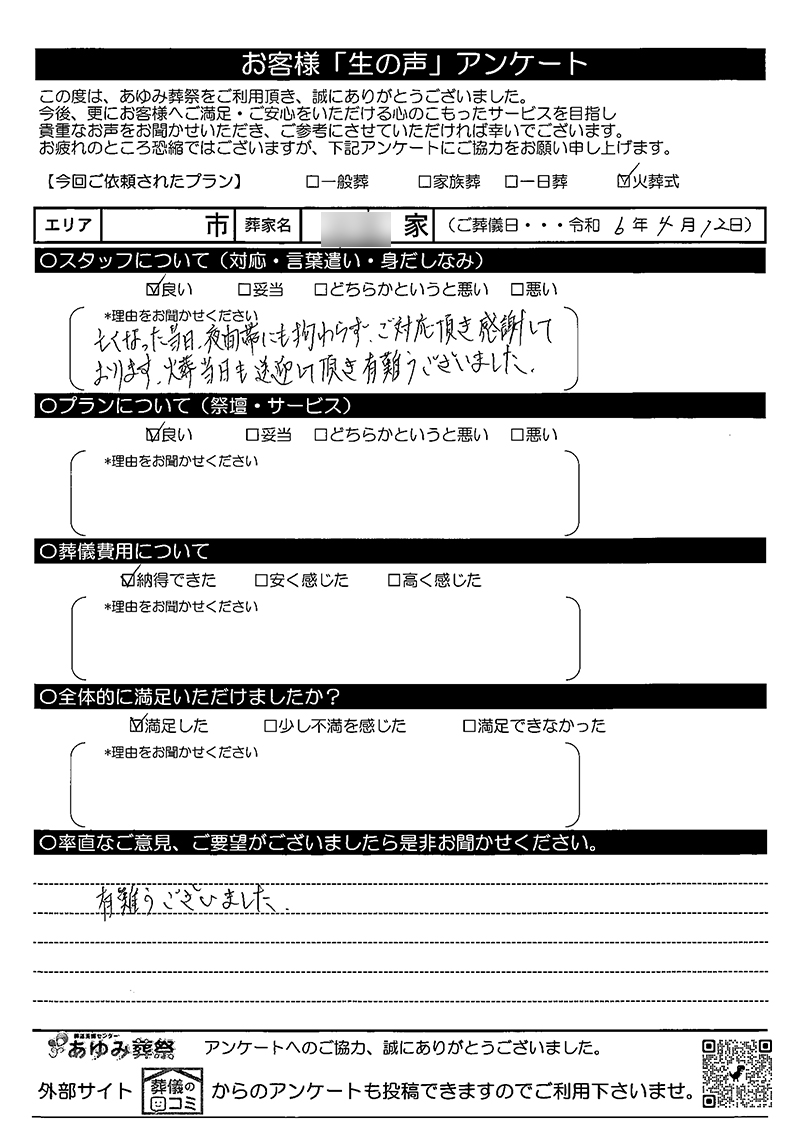 お客様「生の声」アンケート
この度は、あゆみ葬祭をご利用頂き、誠にありがとうございました。
今後、更にお客様へご満足・ご安心をいただける心のこもったサービスを目指し
貴重なお声をお聞かせいただき、ご参考にさせていただければ幸いでございます。
お疲れのところ恐縮ではございますが、下記アンケートにご協力をお願い申し上げます。
【今回ご依頼されたプラン】 □一般葬 □家族葬 □一日葬 ☑火葬式
エリア 市 葬家名 家 (ご葬儀日・・・令和 6 年 4 月 12日)
○スタッフについて(対応・言葉遣い・身だしなみ)
☑良い □妥当 □どちらかというと悪い □悪い
*理由をお聞かせください
亡くなった当日、夜間帯にも拘わらず、ご対応頂き感謝して
おります。火葬当日も送迎して頂き有難うございました。
○プランについて(祭壇・サービス)
☑良い □妥当 □どちらかというと悪い □悪い
*理由をお聞かせください
○葬儀費用について
☑納得できた □安く感じた □高く感じた
*理由をお聞かせください
○全体的に満足いただけましたか?
☑満足した □少し不満を感じた □満足できなかった
*理由をお聞かせください
○率直なご意見、ご要望がございましたら是非お聞かせください。
有難うございました。
葬送支援センター
あゆみ葬祭 アンケートへのご協力、誠にありがとうございました。
外部サイト 葬儀の口コミ からのアンケートも投稿できますのでご利用下さいませ。